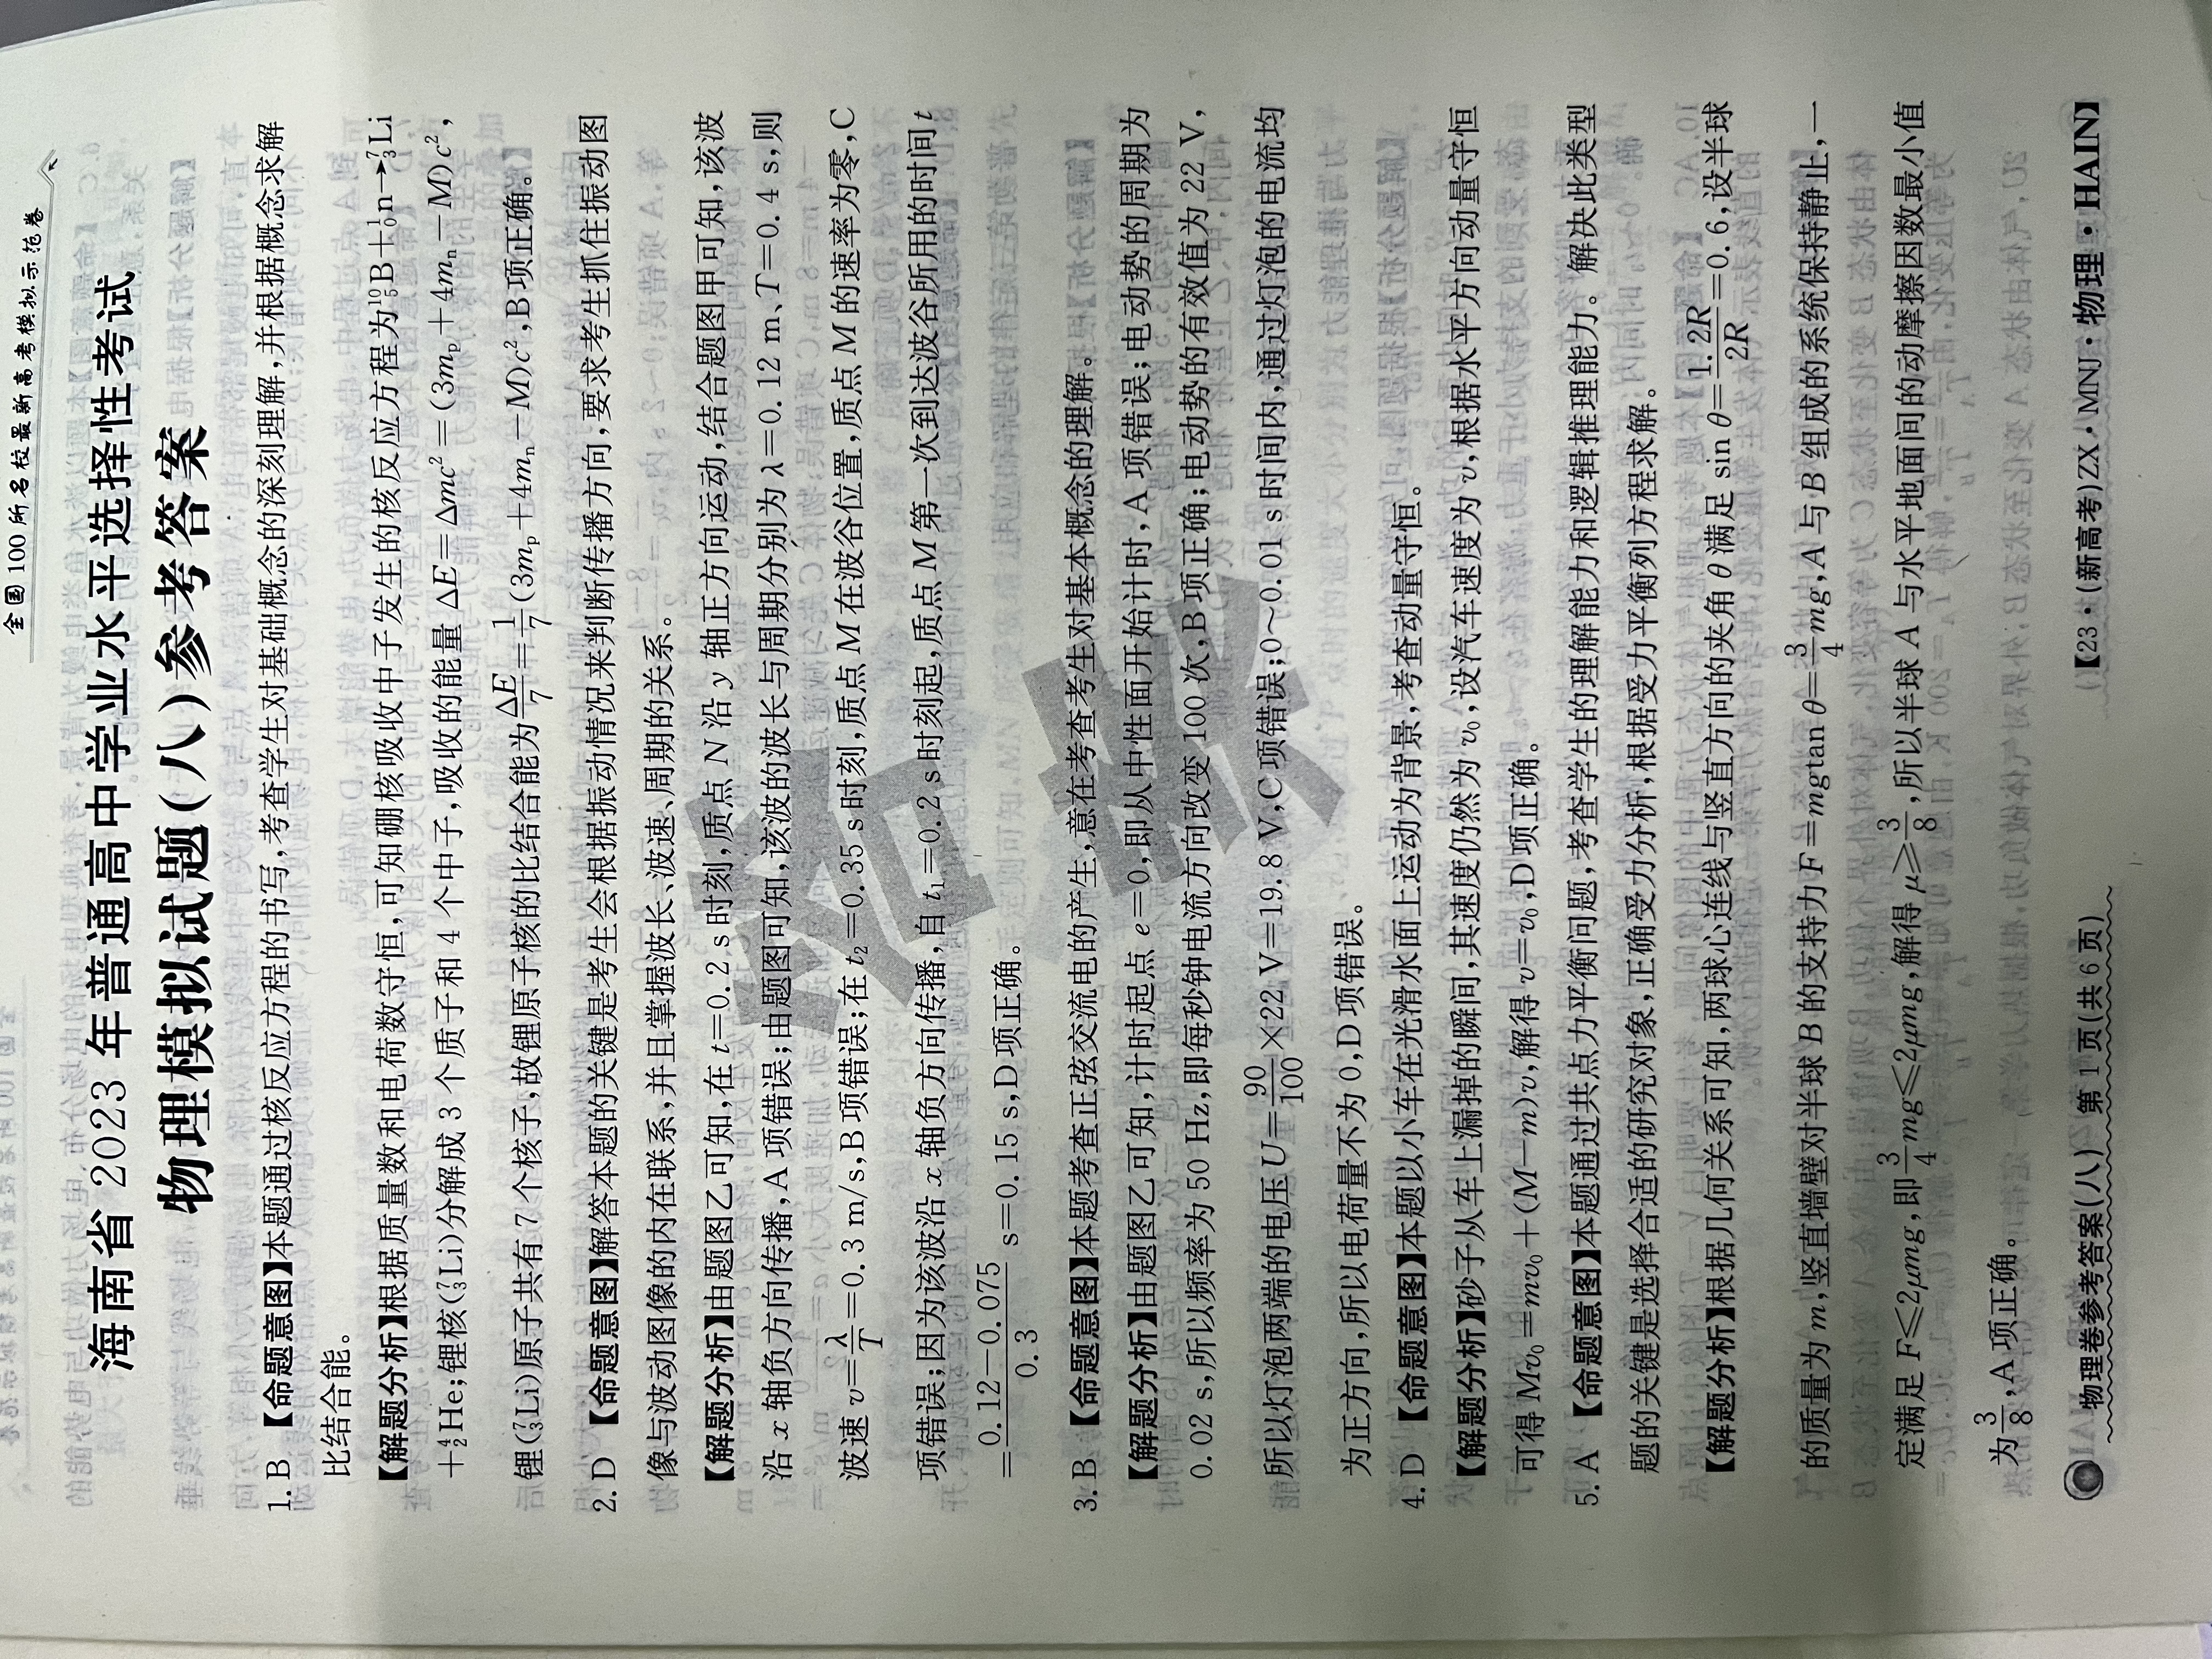 全国100所名校最新高考模拟示范卷
海南省 2023 年普通高中学业水平选择性考试
物理模拟试题(八)参考答案
1. B 【命题意图】本题通过核反应方程的书写,考查学生对基础概念的深刻理解,并根据概念求解
比结合能。
【解题分析】根据质量数和电荷数守恒,可知硼核吸收中子发生的核反应方程为¹⁰₅B+¹₀n→⁷₃Li
+⁴₂He;锂核(⁷₃Li)分解成 3 个质子和 4 个中子,吸收的能量 ΔE=Δmc²=(3mₚ+4mₙ−M)c²,
锂(⁷₃Li)原子共有 7 个核子,故锂原子核的比结合能为ΔE/7=1/7(3mₚ+4mₙ−M)c²,B 项正确。
2. D 【命题意图】解答本题的关键是考生会根据振动情况来判断传播方向,要求考生抓住振动图
像与波动图像的内在联系,并且掌握波长、波速、周期的关系。
【解题分析】由题图乙可知,在 t=0.2 s 时刻,质点 N 沿 y 轴正方向运动,结合题图甲可知,该波
沿 x 轴负方向传播,A 项错误;由题图可知,该波的波长与周期分别为 λ=0.12 m、T=0.4 s,则
波速 v=λ/T=0.3 m/s,B 项错误;在 t₂=0.35 s 时刻,质点 M 在波谷位置,质点 M 的速率为零,C
项错误;因为该波沿 x 轴负方向传播,自 t₁=0.2 s 时刻起,质点 M 第一次到达波谷所用的时间 t
=(0.12−0.075)/0.3 s=0.15 s,D 项正确。
3. B 【命题意图】本题考查正弦交流电的产生,意在考查考生对基本概念的理解。
【解题分析】由题图乙可知,计时起点 e=0,即从中性面开始计时,A 项错误;电动势的周期为
0.02 s,所以频率为 50 Hz,即每秒钟电流方向改变 100 次,B 项正确;电动势的有效值为 22 V,
所以灯泡两端的电压 U=90/100×22 V=19.8 V,C 项错误;0~0.01 s 时间内,通过灯泡的电流均
为正方向,所以电荷量不为 0,D 项错误。
4. D 【命题意图】本题以小车在光滑水面上运动为背景,考查动量守恒。
【解题分析】砂子从车上漏掉的瞬间,其速度仍然为 v₀,设汽车速度为 v,根据水平方向动量守恒
可得 Mv₀=mv₀+(M−m)v,解得 v=v₀,D 项正确。
5. A 【命题意图】本题通过共点力平衡问题,考查学生的理解能力和逻辑推理能力。解决此类型
题的关键是选择合适的研究对象,正确受力分析,根据受力平衡列方程求解。
【解题分析】根据几何关系可知,两球心连线与竖直方向的夹角 θ 满足 sin θ=1.2R/2R=0.6,设半球
的质量为 m,竖直墙壁对半球 B 的支持力 F=mgtan θ=3/4mg,A 与 B 组成的系统保持静止,一
定满足 F≤2μmg,即3/4mg≤2μmg,解得 μ≥3/8,所以半球 A 与水平地面间的动摩擦因数最小值
为3/8,A 项正确。
物理卷参考答案(八) 第 1 页(共 6 页)
【23·(新高考)ZX·MNJ·物理·HAIN】